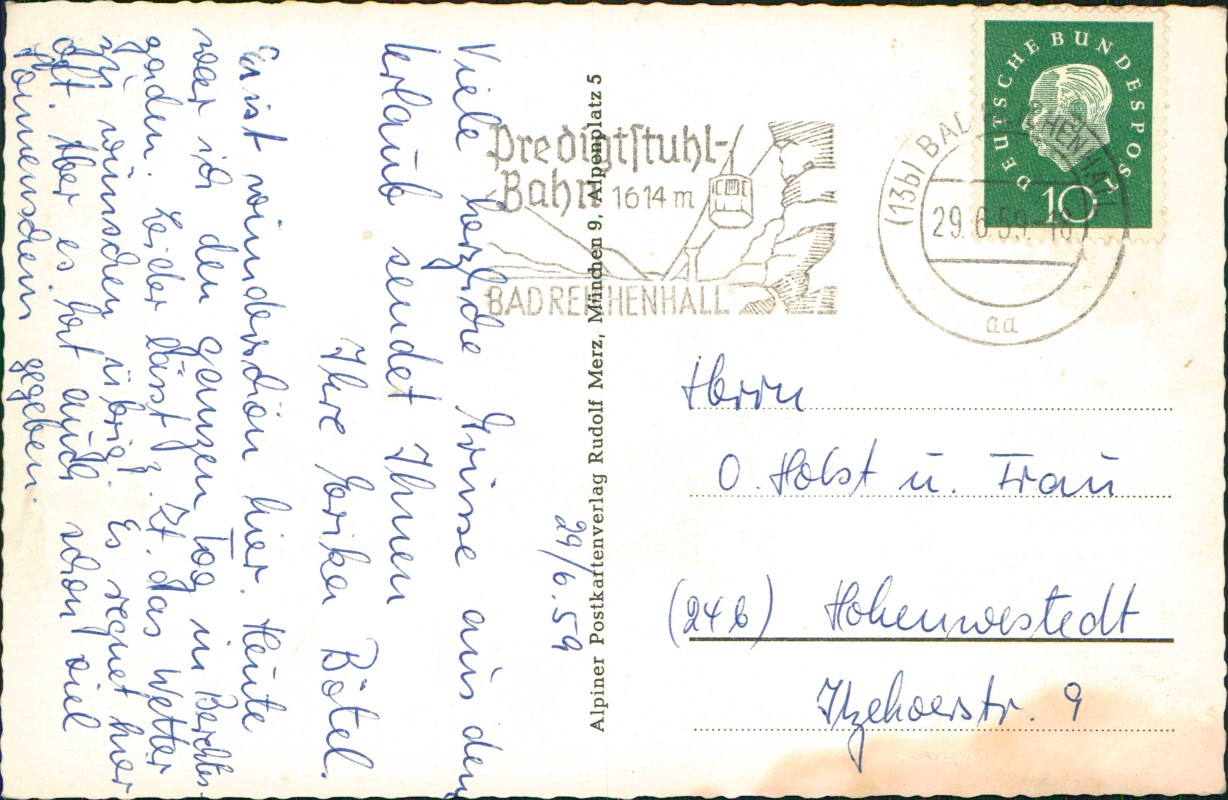 29/6.59
Viele herzliche Grüsse aus dem
Urlaub sendet Ihnen
Ihre Erika Bötel.
Es ist wunderschön hier. Heute
war ich den ganzen Tag in Berchtes-
gaden. Leider lässt z. Zt. das Wetter
zu wünschen übrig. Es regnet hier
oft. Aber es hat auch schon viel
Sonnenschein gegeben.
Alpiner Postkartenverlag Rudolf Merz, München 9, Alpenplatz 5
Predigtstuhl-
Bahn 1614 m
BAD REICHENHALL
(13b) BAD REICHENHALL
29.6.59.-18
aa
DEUTSCHE BUNDESPOST
10
Herrn
O. Holst u. Frau
(24b) Hohenwestedt
Itzehoerstr. 9